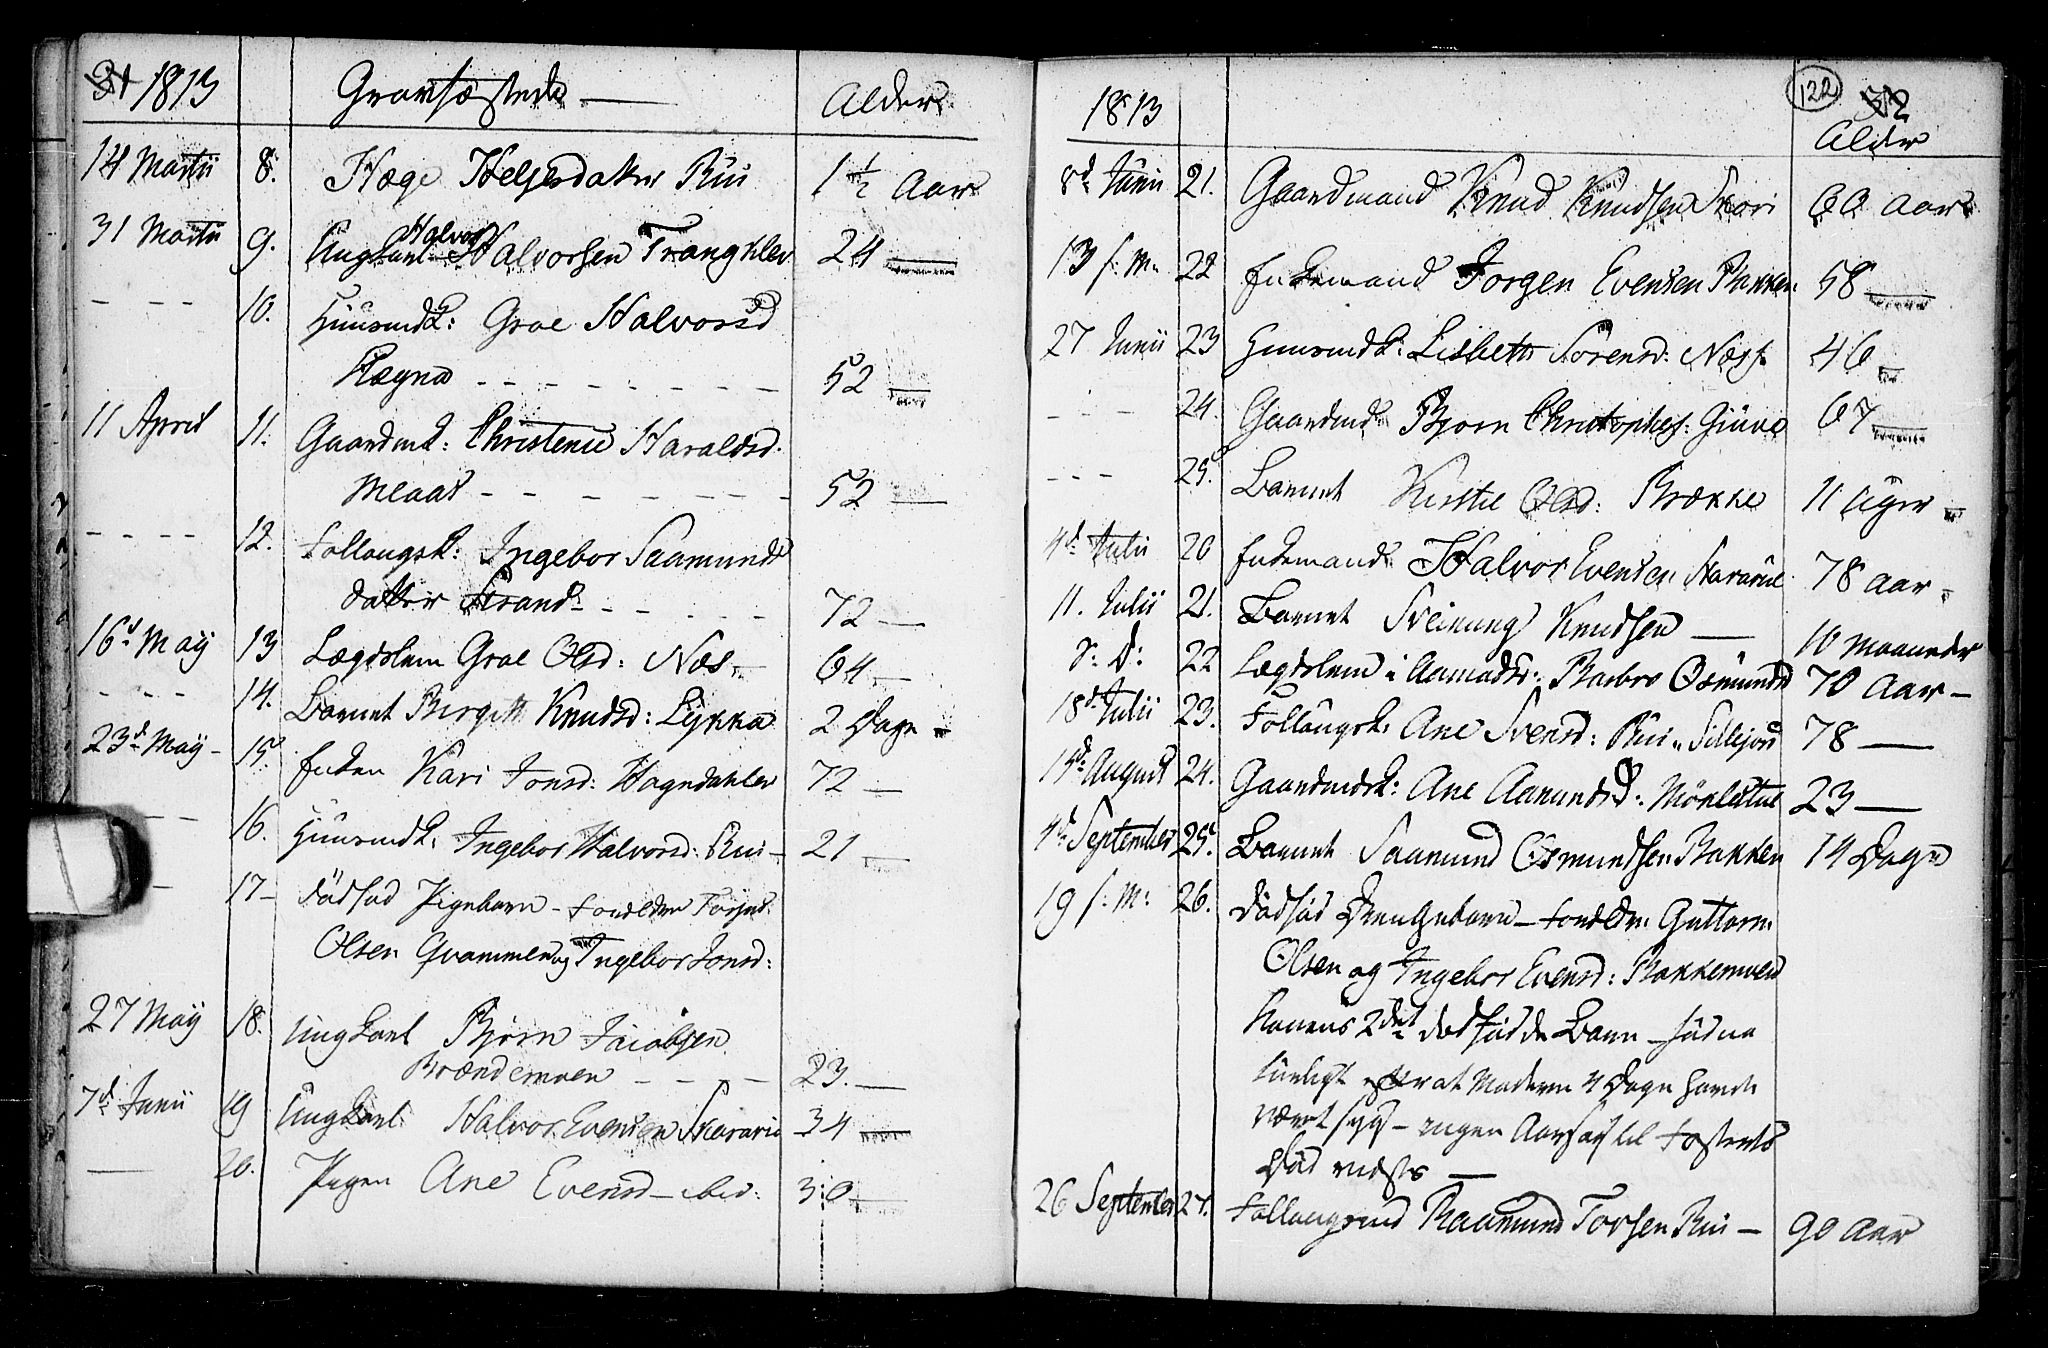 31 1813 Gravfæstede Alder
14 Martii 8. Hæge Heljesdatter Rui 1 1/2 Aar
31 Martii 9. Ungkarl Halvor Halvorsen Trangklev 24
10. Huusmdk: Groe Halvorsd
Hægna 52
11 April 11. Gaardmk: Christense Haraldsd.
Meaas 52
12. Follaugsk: Ingebor Saamunds
datter Strand 72
16d May 13 Lægdslem Groe Olsd: Næs 64
14. Barnet Birgith Knudsd: Lykka 2 Dage
23d May 15. Enken Kari Jonsd: Hagndahlen 72
16. Huusmdk. Ingebor Halvorsd: Rui 21
17 dödfød Pigebarn - Forældre Torjus
Olsen Qvammen og Ingebor Jonsd:
27 May 18. Ungkarl Bjørn Jacobsen
Brændemoen 23.
7d Junii 19 Ungkarl Halvor Evensen 34
20. Pigen Ane Evensd - ibid: 30
1813 122 32
Alder
8d Junii 21. Gaardmand Knud Knudsen 60 Aar
13 s: M: 22 Enkemand Jorgen Evensen Bakken 58
27 Junii 23 Huusmdk: Lisbeth Sorensd: Næs 46
24. Gaardmd Bjorn Christophes: Giuve 67
25. Barnet Kirstie Olsd: Brække 11 Uger
4d Julii 20 Enkemand Halvor Evensen 78 Aar
11. Julii 21. Barnet Sveinung Knudsen 10 Maaneder
S: D: 22 Lægdslem i Aamodsr: Barbro Osmundsd 70 Aar
18d Julii 23. Follaugsk. Ane Svensd: Rui i Sillejord 78
15d August 24. Gaardmdsk: Ane Aamundsd: 23
4d September 25. Barnet Saamund Osmundsen Bakken 14 Dage
19 s: M: 26. dødfød Drengebarn - Forældre Guttorm
Olsen og Ingebor Evensd: Bakkemoen
Konens 2det dødfødde Barn - fødna
turligt efter at Moderen 4 Dage havde
været syg - ingen Aarsag til Fosterets
Død vidstes
26 September 27. Follaugsmd Raamund Torsen Rui 90 Aar